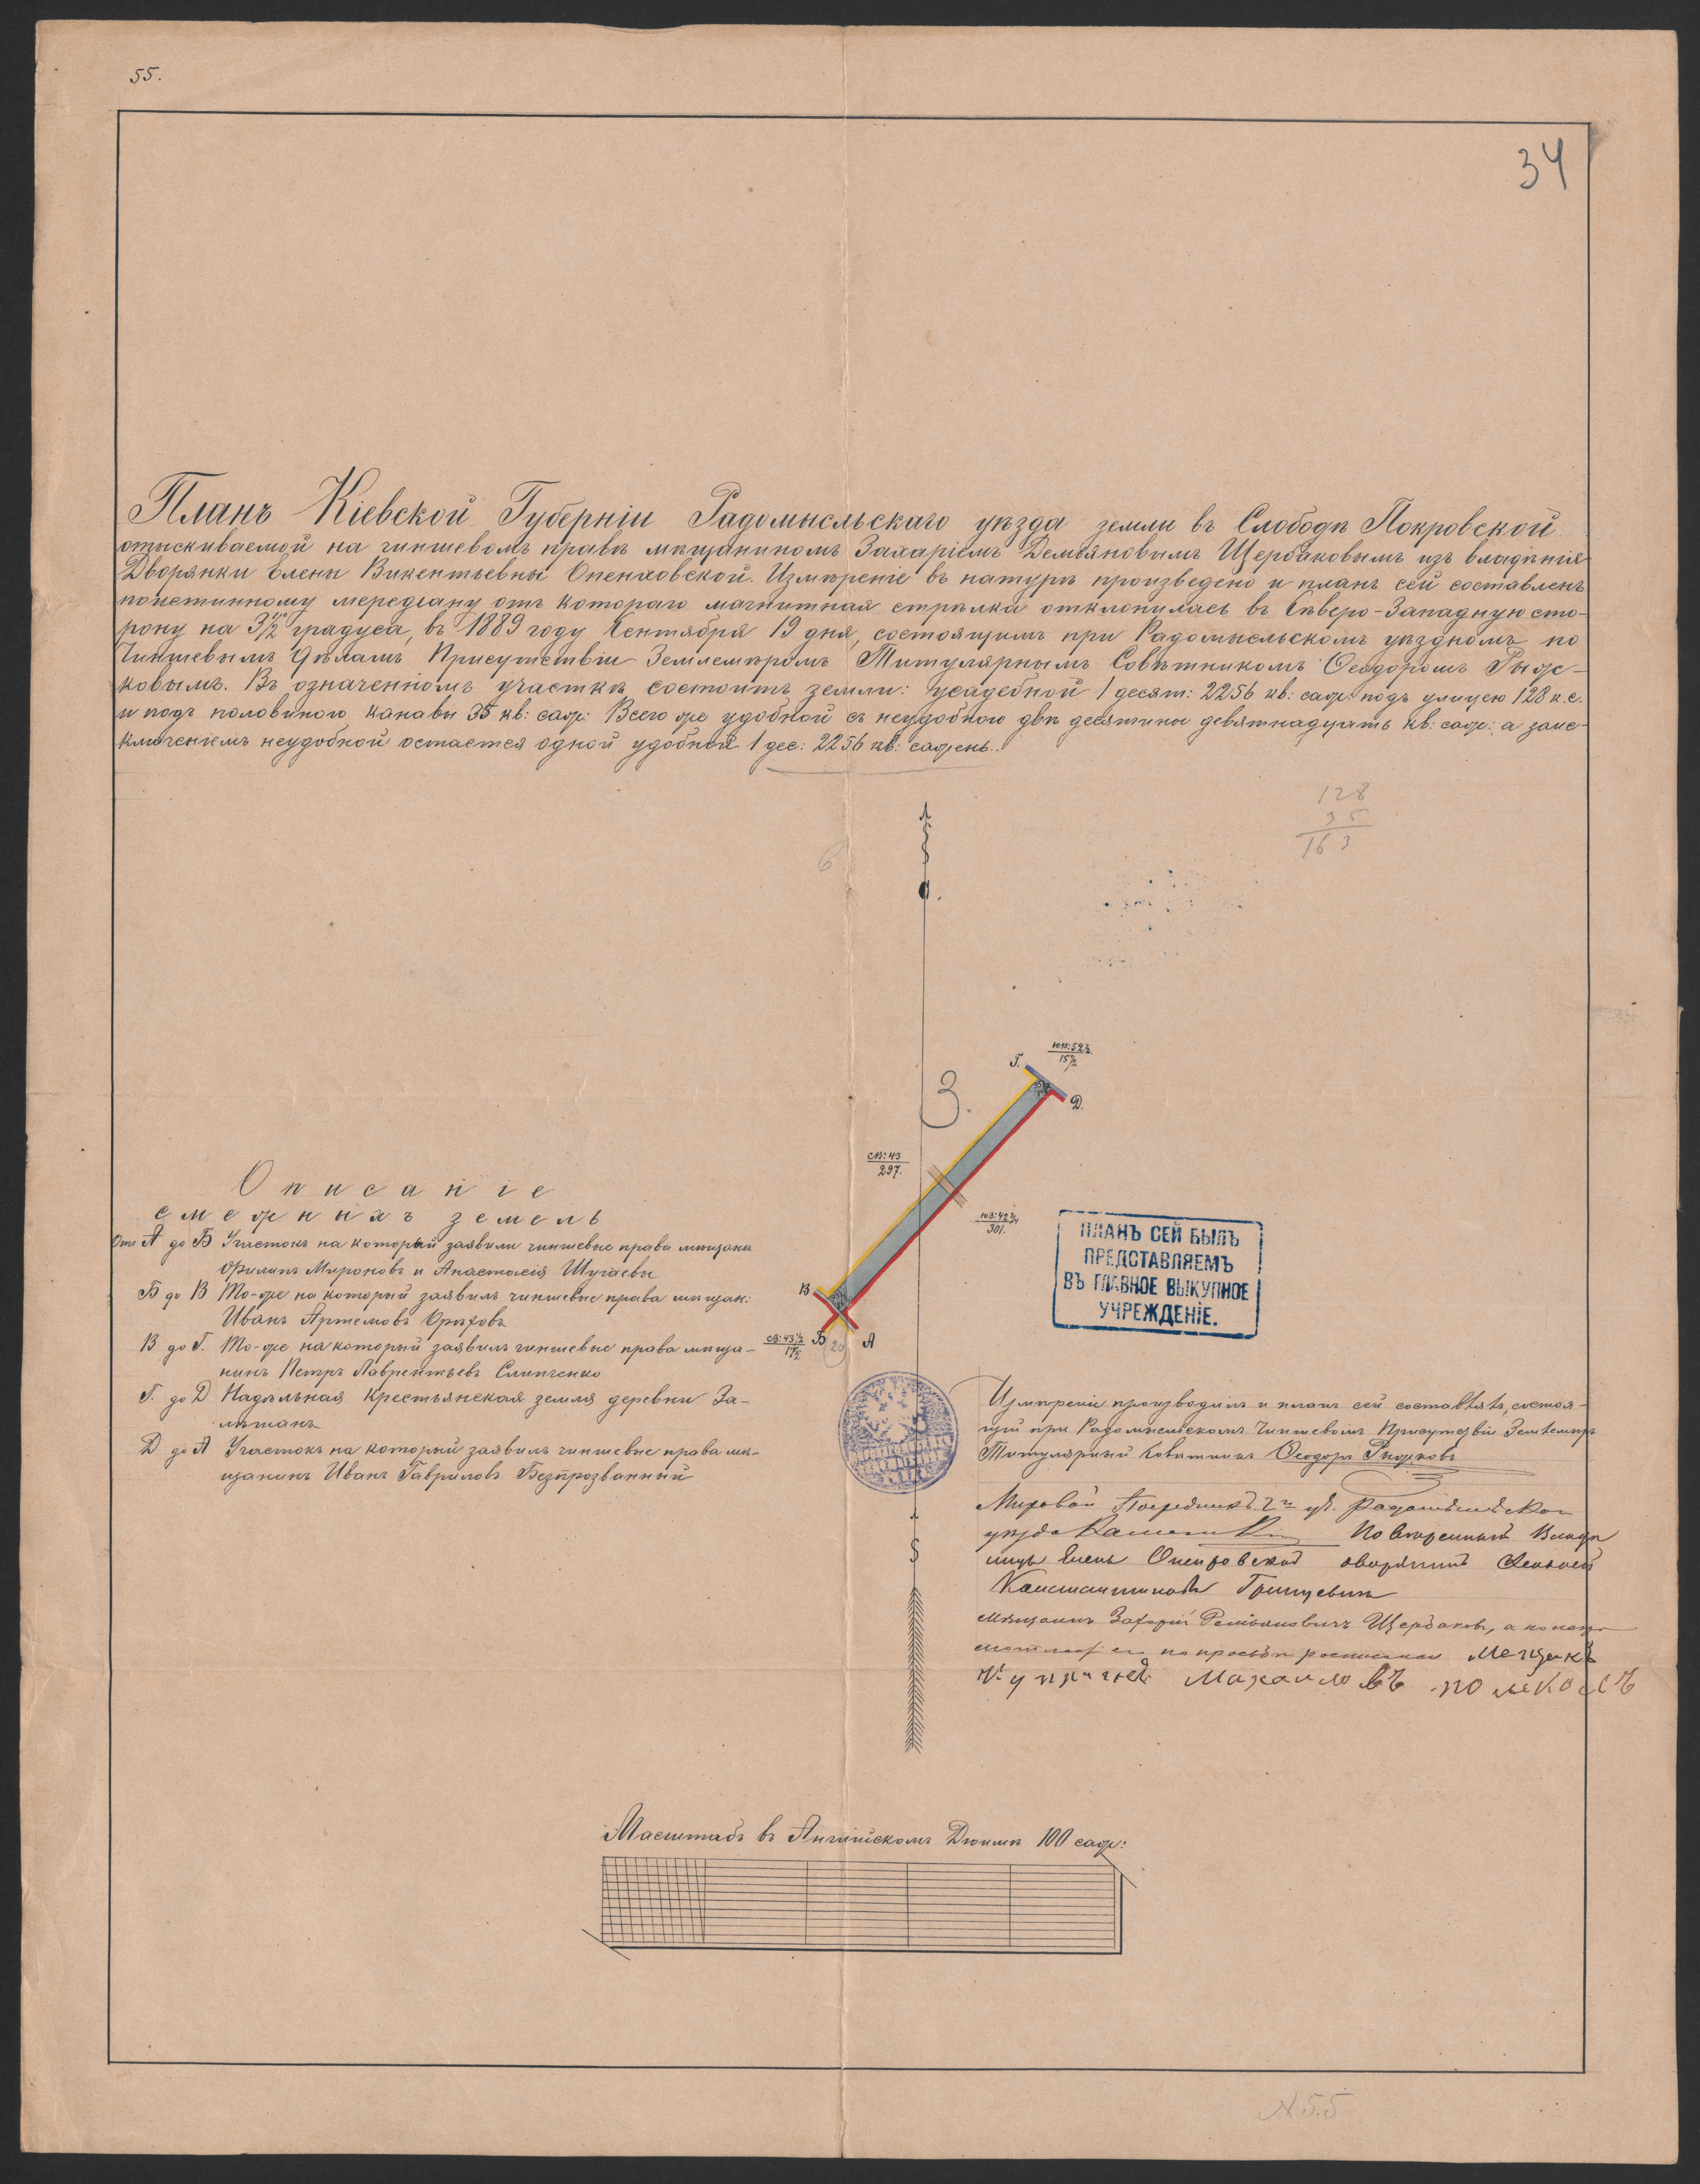 55.
34
Планъ Кіевской Губерніи Радомысльскаго уѣзда земли въ Слободѣ Покровской
отыскиваемой на чиншевомъ правѣ мѣщаниномъ Захаріемъ Демьяновымъ Щербаковымъ изъ владѣнія
Дворянки Елены Викентьевны Опенховской. Измѣреніе въ натурѣ произведено и планъ сей составленъ
поистинному меридіану отъ котораго магнитная стрѣлка отклонилась въ Сѣверо-Западную сто-
рону на 3 1/2 градуса, въ 1889 году Сентября 19 дня, состоящимъ при Радомысльскомъ уѣздномъ по
Чиншевымъ Дѣламъ Присутствіи Землемѣромъ Титулярнымъ Совѣтникомъ Ѳеодоромъ Рыж-
ковымъ. Въ означенномъ участкѣ состоитъ земли: усадебной 1 десят: 2256 кв: саж: подъ улицею 128 к.с.
и подъ половиною канавы 35 кв: саж: Всего же удобной съ неудобною двѣ десятины девятнадцать кв: саж: а заис-
ключеніемъ неудобной остается одной удобной 1 дес: 2256 кв: сажень.
128
35
163
6
Г.
ЮВ:52 1/2
15 1/2
Д.
3.
СВ:43
297.
ЮЗ:42 3/4
301.
В
СЗ:43 1/2
17 1/2
Б
20
А
Описаніе
смежныхъ земель
Отъ А до Б Участокъ на который заявили чиншевые права мѣщане
Филипъ Мироновъ и Анастасія Шугаевы
Б до В То-же на который заявилъ чиншевые права мѣщан:
Иванъ Артемовъ Орѣховъ
В до Г. То-же на который заявилъ чиншевые права мѣща-
нинъ Петръ Лаврентьевъ Слипченко
Г. до Д Надѣльная Крестьянская земля деревни За-
лѣшанъ
Д до А Участокъ на который заявилъ чиншевые права мѣ-
щанинъ Иванъ Гавриловъ Безпрозванный
ПЛАНЪ СЕЙ БЫЛЪ
ПРЕДСТАВЛЯЕМЪ
ВЪ ГЛАВНОЕ ВЫКУПНОЕ
УЧРЕЖДЕНІЕ.
Измѣреніе производилъ и планъ сей составлялъ, состоя-
щій при Радомысльскомъ Чиншевомъ Присутствіи Землемѣръ
Титулярный Совѣтникъ Ѳеодоръ Рыжковъ
Мировой Посредникъ уч. Радомысльскаго
уѣзда Повѣренный Владѣ
лицы Елены Опенховской дворянинъ
Константиновъ Грицевичъ
Мѣщанинъ Захарій Демьяновичъ Щербаковъ, а по него
грамотности его по просьбѣ росписался Мещанъ
Михаиловъ
Масштабъ въ Англійскомъ Дюймѣ 100 саж:
N 55